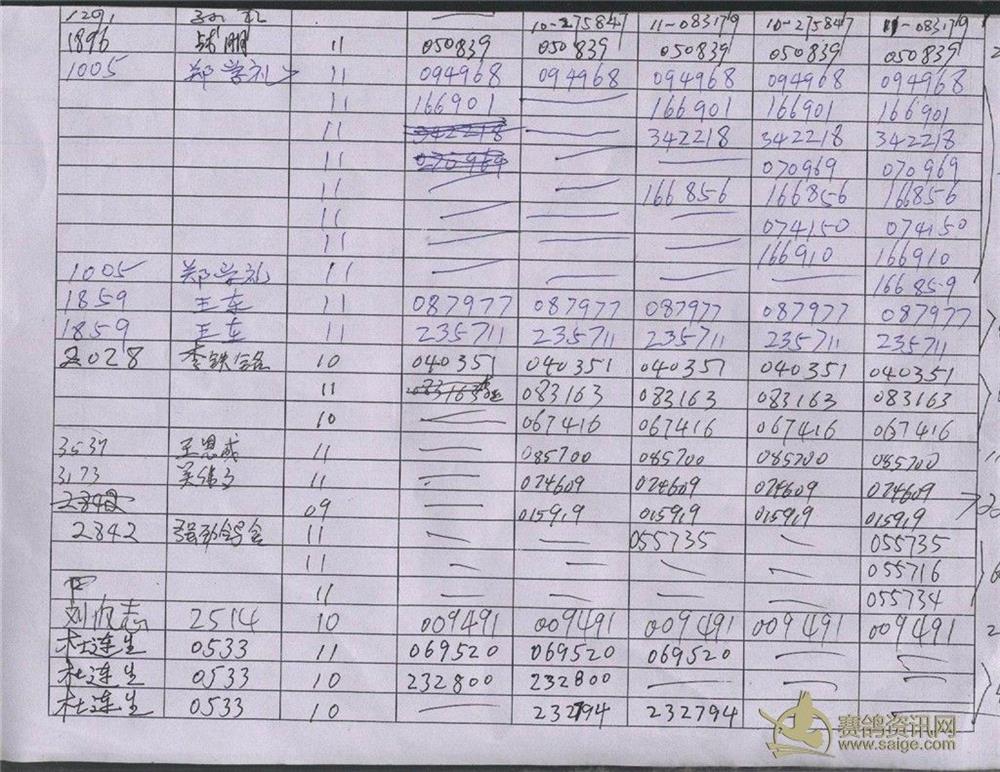 1291 10-275847 11-083179 10-275847 11-083179
1896 11 050839 050839 050839 050839 050839
1005 郑学礼 11 094968 094968 094968 094968 094968
11 166901 — 166901 166901 166901
11 342218 — 342218 342218 342218
11 070969 — — 070969 070969
11 — — 166856 166856 166856
11 — — — 074150 074150
11 — — — 166910 166910
1005 郑学礼 11 — — — — 166859
1859 王车 11 087977 087977 087977 087977 087977
1859 王车 11 235711 235711 235711 235711 235711
2028 李铁铭 10 040351 040351 040351 040351 040351
11 083163 083163 083163 083163 083163
10 — 067416 067416 067416 067416
3537 王恩成 11 — 085700 085700 085700 085700
3173 11 — 024609 024609 024609 024609
2842 09 — 015919 015919 015919 015919
2842 11 — — 055735 — 055735
11 — — — — 055716
11 — — — — 055734
刘振志 2514 10 009491 009491 009491 009491 009491
杜连生 0533 11 069520 069520 069520 — —
杜连生 0533 10 232800 232800 — — —
杜连生 0533 10 — 232794 232794
赛鸽资讯网
www.saige.com